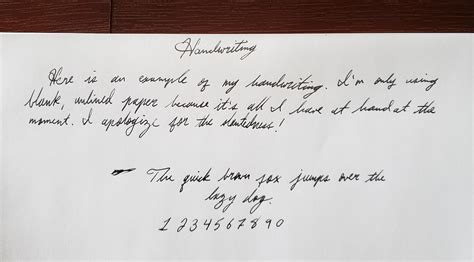 Handwriting
Here is an example of my handwriting. I'm only using
blank, unlined paper because it's all I have at hand at the
moment. I apologize for the slantedness!
The quick brown fox jumps over the
lazy dog.
1 2 3 4 5 6 7 8 9 0